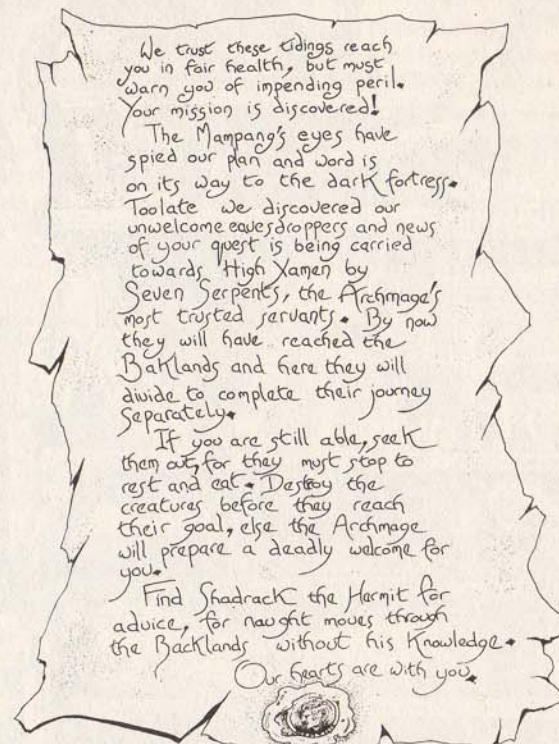 We trust these tidings reach
you in fair health, but must
warn you of impending peril.
Your mission is discovered!
The Mampang's eyes have
spied our plan and word is
on its way to the dark fortress.
Toolate we discovered our
unwelcome eavesdroppers and news
of your quest is being carried
towards High Xamen by
Seven Serpents, the Archmage's
most trusted servants. By now
they will have reached the
Baklands and here they will
divide to complete their journey
separately.
If you are still able, seek
them out, for they must stop to
rest and eat. Destroy the
creatures before they reach
their goal, else the Archmage
will prepare a deadly welcome for
you.
Find Shadrack the Hermit for
advice, for naught moves through
the Backlands without his Knowledge.
Our hearts are with you.